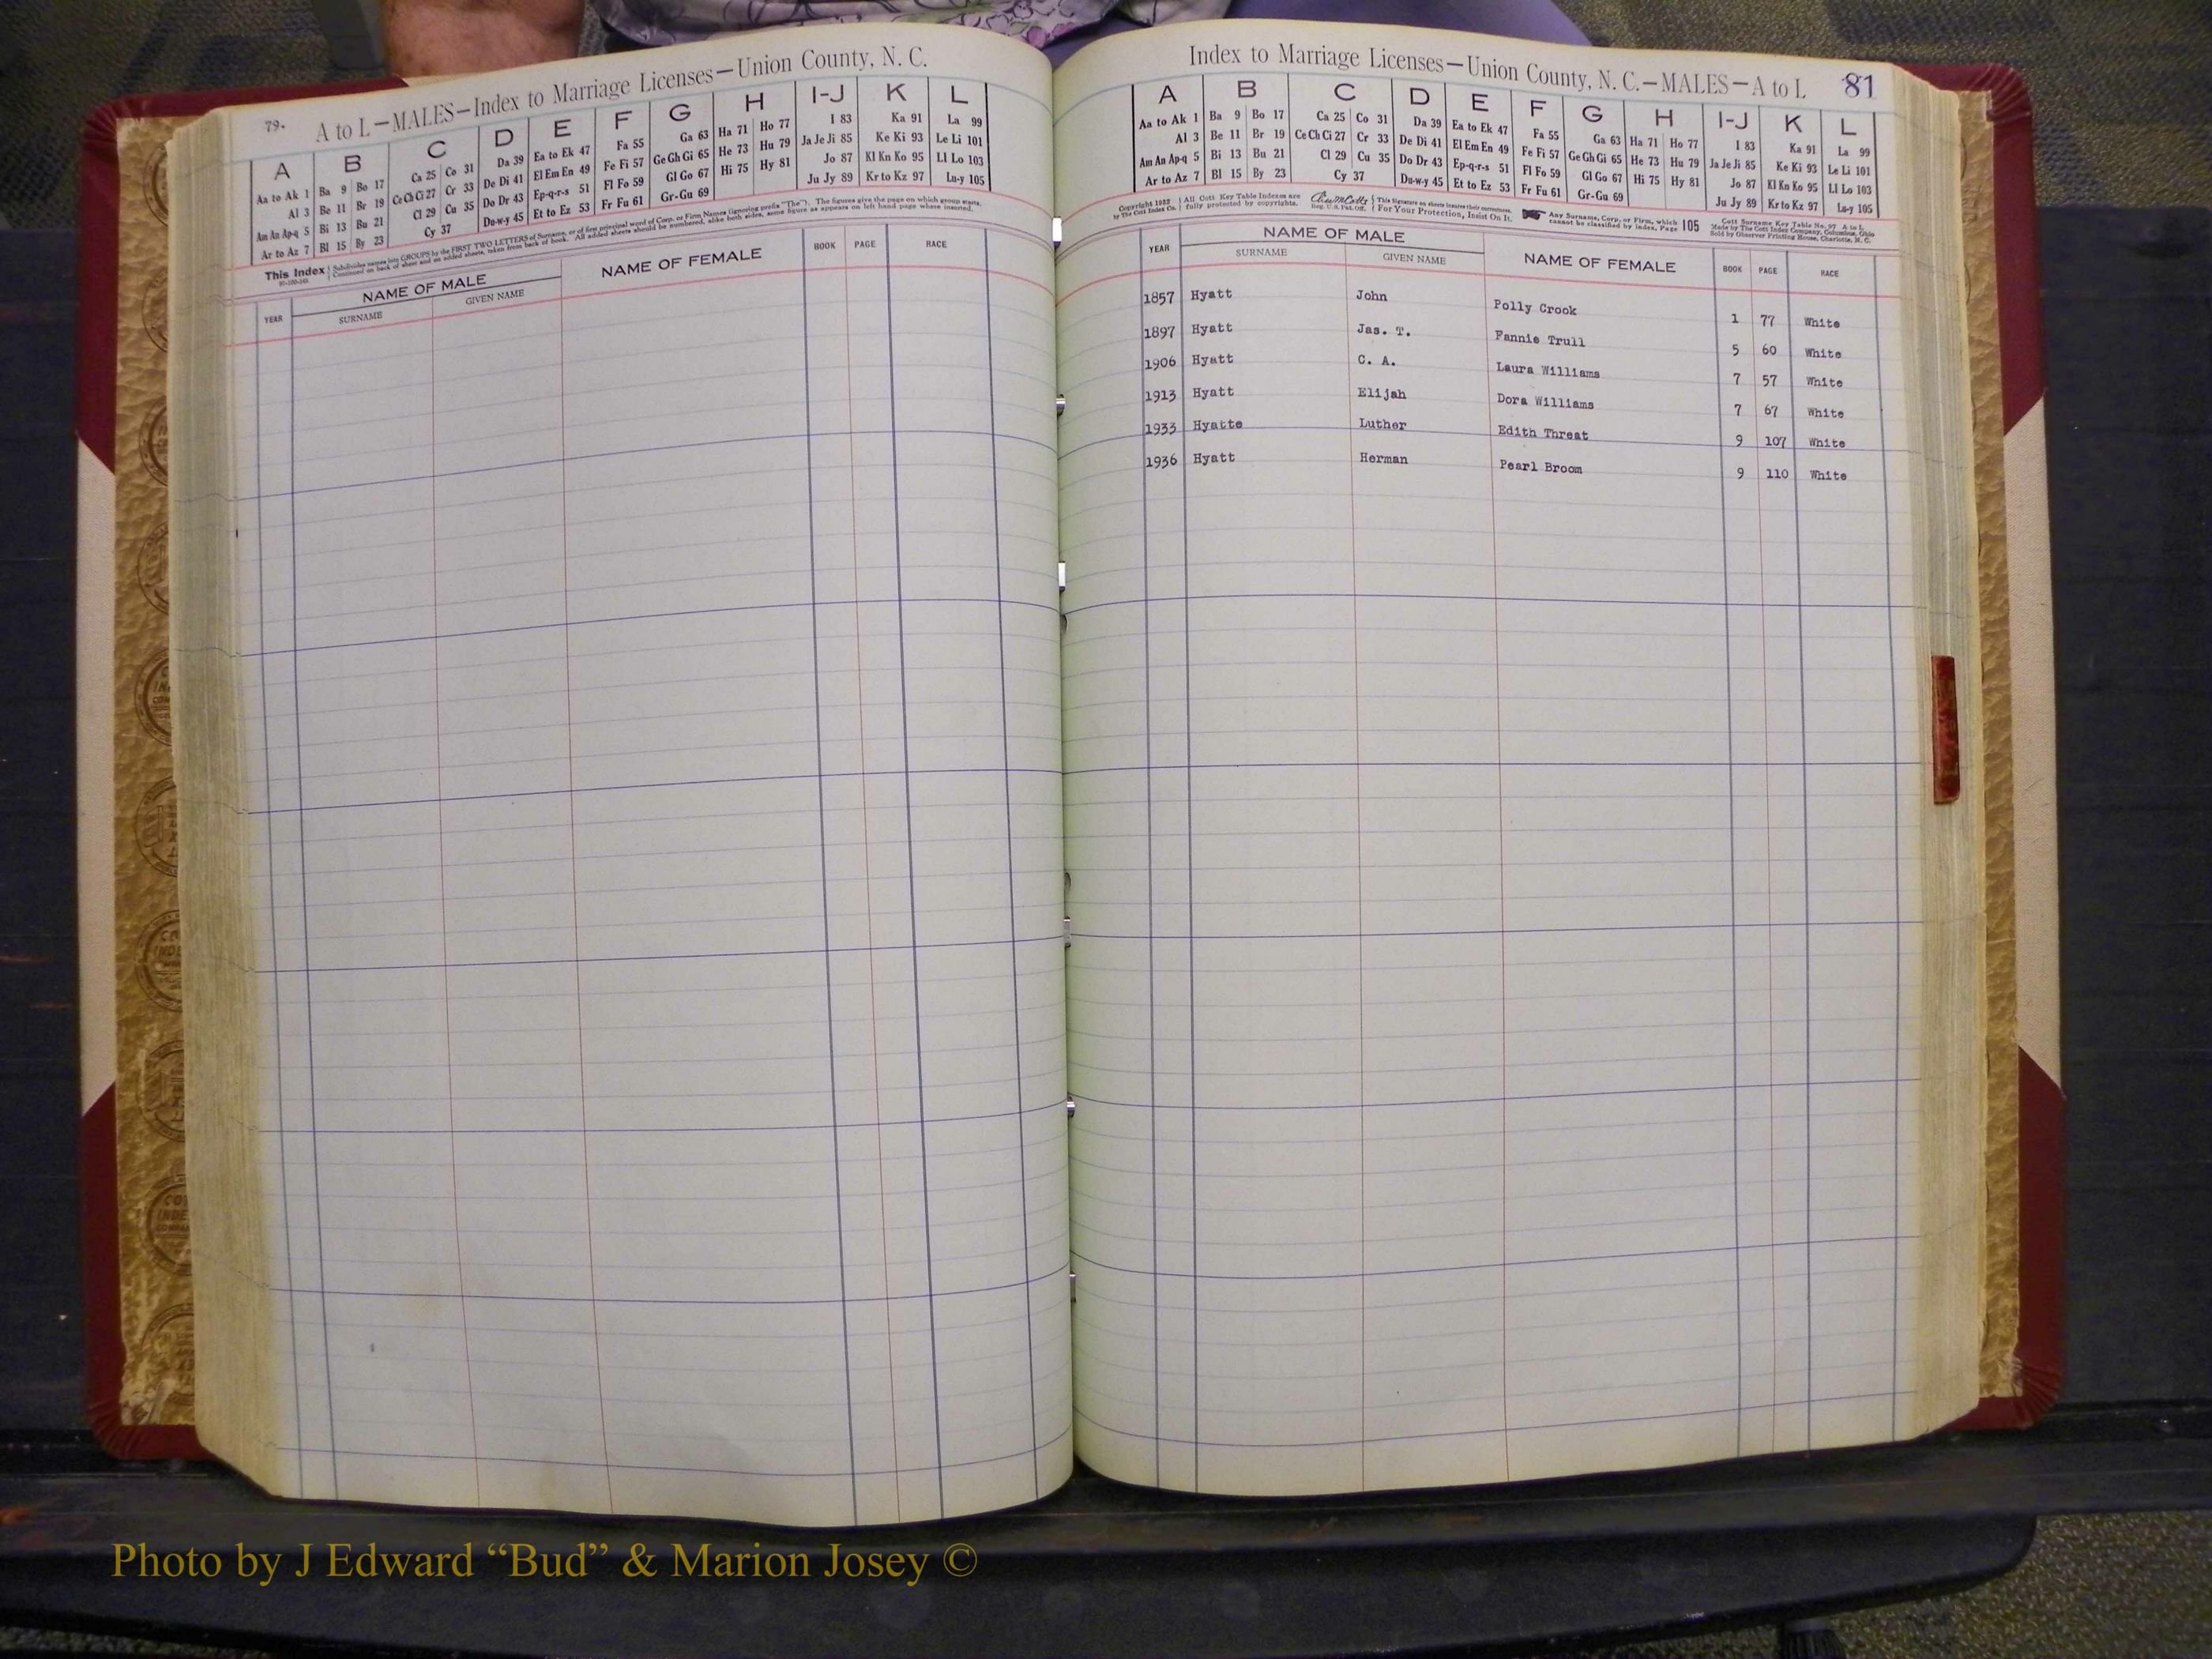 79.
A to L—MALES—Index to Marriage Licenses—Union County, N. C.
A B C D E F G H I-J K L
Aa to Ak 1 Ba 9 Bo 17 Ca 25 Co 31 Da 39 Ea to Ek 47 Fa 55 Ga 63 Ha 71 Ho 77 I 83 Ka 91 La 99
Al 3 Be 11 Br 19 Ce Ch Ci 27 Cr 33 De Di 41 El Em En 49 Fe Fi 57 Ge Gh Gi 65 He 73 Hu 79 Ja Je Ji 85 Ke Ki 93 Le Li 101
Am An Ap-q 5 Bi 13 Bu 21 Cl 29 Cu 35 Do Dr 43 Ep-q-r-s 51 Fl Fo 59 Gl Go 67 Hi 75 Hy 81 Jo 87 Kl Kn Ko 95 Ll Lo 103
Ar to Az 7 Bl 15 By 23 Cy 37 Du-w-y 45 Et to Ez 53 Fr Fu 61 Gr-Gu 69 Ju Jy 89 Kr to Kz 97 Lu-y 105
This Index Subdivides names into GROUPS by the FIRST TWO LETTERS of Surname, or of first principal word of Corp. or Firm Names (ignoring prefix "The"). The figures give the page on which group starts.
Continued on back of sheet and on added sheets, taken from back of book. All added sheets should be numbered, alike both sides, same figure as appears on left hand page where inserted.
YEAR NAME OF MALE NAME OF FEMALE BOOK PAGE RACE
SURNAME GIVEN NAME
Index to Marriage Licenses—Union County, N. C.—MALES—A to L 81
A B C D E F G H I-J K L
Aa to Ak 1 Ba 9 Bo 17 Ca 25 Co 31 Da 39 Ea to Ek 47 Fa 55 Ga 63 Ha 71 Ho 77 I 83 Ka 91 La 99
Al 3 Be 11 Br 19 Ce Ch Ci 27 Cr 33 De Di 41 El Em En 49 Fe Fi 57 Ge Gh Gi 65 He 73 Hu 79 Ja Je Ji 85 Ke Ki 93 Le Li 101
Am An Ap-q 5 Bi 13 Bu 21 Cl 29 Cu 35 Do Dr 43 Ep-q-r-s 51 Fl Fo 59 Gl Go 67 Hi 75 Hy 81 Jo 87 Kl Kn Ko 95 Ll Lo 103
Ar to Az 7 Bl 15 By 23 Cy 37 Du-w-y 45 Et to Ez 53 Fr Fu 61 Gr-Gu 69 Ju Jy 89 Kr to Kz 97 Lu-y 105
All Cott Key Table Indexes are fully protected by copyrights.
This Signature on sheets insures their correctness. For Your Protection, Insist On It.
Any Surname, Corp. or Firm, which cannot be classified by Index, Page 105
Made by The Cott Index Company, Columbus, Ohio
Sold by Observer Printing House, Charlotte, N. C.
YEAR NAME OF MALE NAME OF FEMALE BOOK PAGE RACE
SURNAME GIVEN NAME
1857 Hyatt John Polly Crook 1 77 White
1897 Hyatt Jas. T. Fannie Trull 5 60 White
1906 Hyatt C. A. Laura Williams 7 57 White
1913 Hyatt Elijah Dora Williams 7 67 White
1933 Hyatte Luther Edith Threat 9 107 White
1936 Hyatt Herman Pearl Broom 9 110 White
Photo by J Edward “Bud” & Marion Josey ©